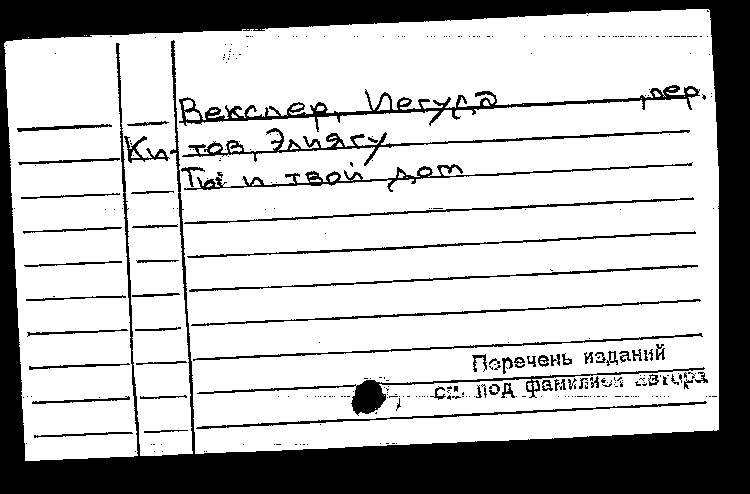 Векслер, Иегуда , пер.
Ки-тов, Элиягу
Ты и твой дом
Перечень изданий
см. под фамилией автора